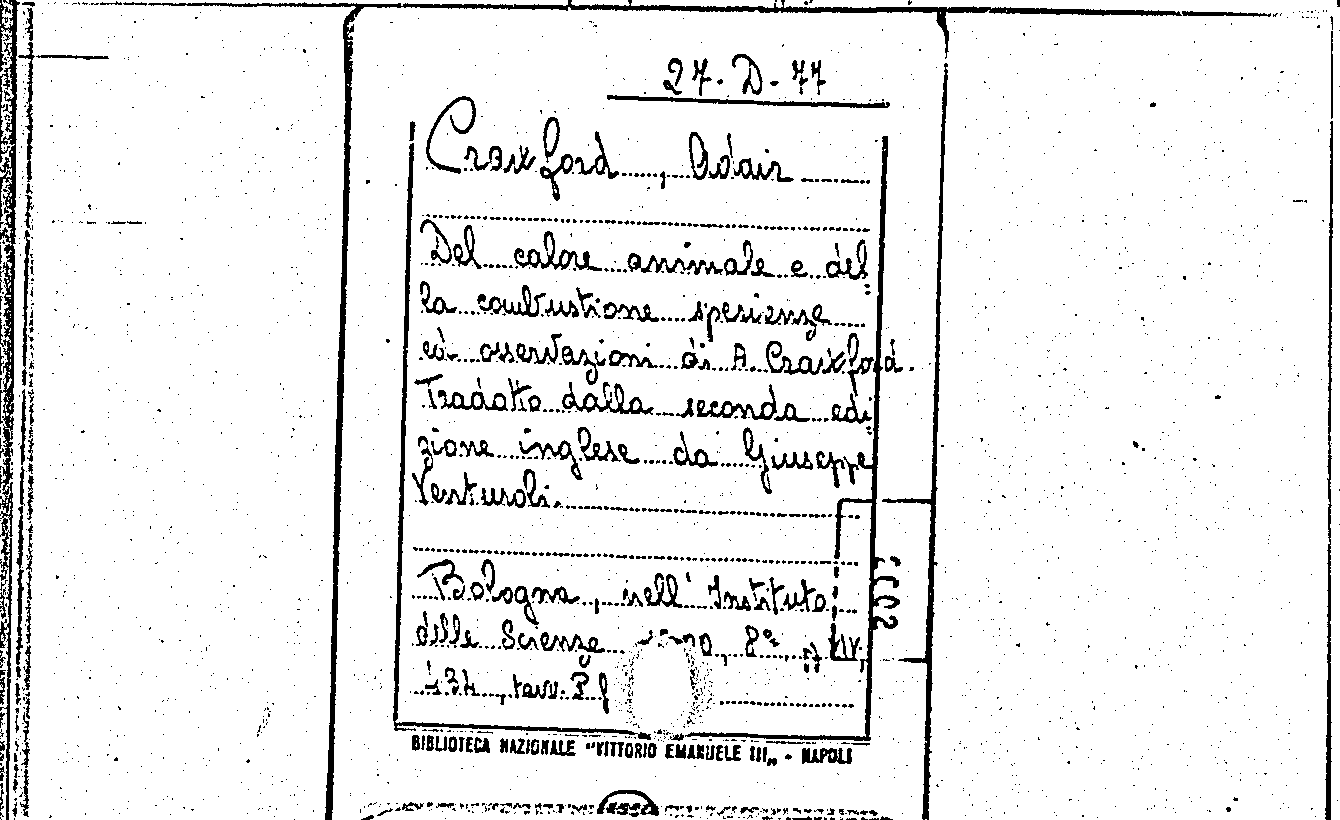 27. D. 77
Craxford, Adair
Del calore animale e del
la combustione sperienze
ed osservazioni di A. Craxford.
Tradotto dalla seconda edi
zione inglese da Giuseppe
Venturoli.
Bologna, nell' Instituto
delle Scienze 8º, XIV,
434, tavv. P. f
BIBLIOTECA NAZIONALE "VITTORIO EMANUELE III„ - NAPOLI